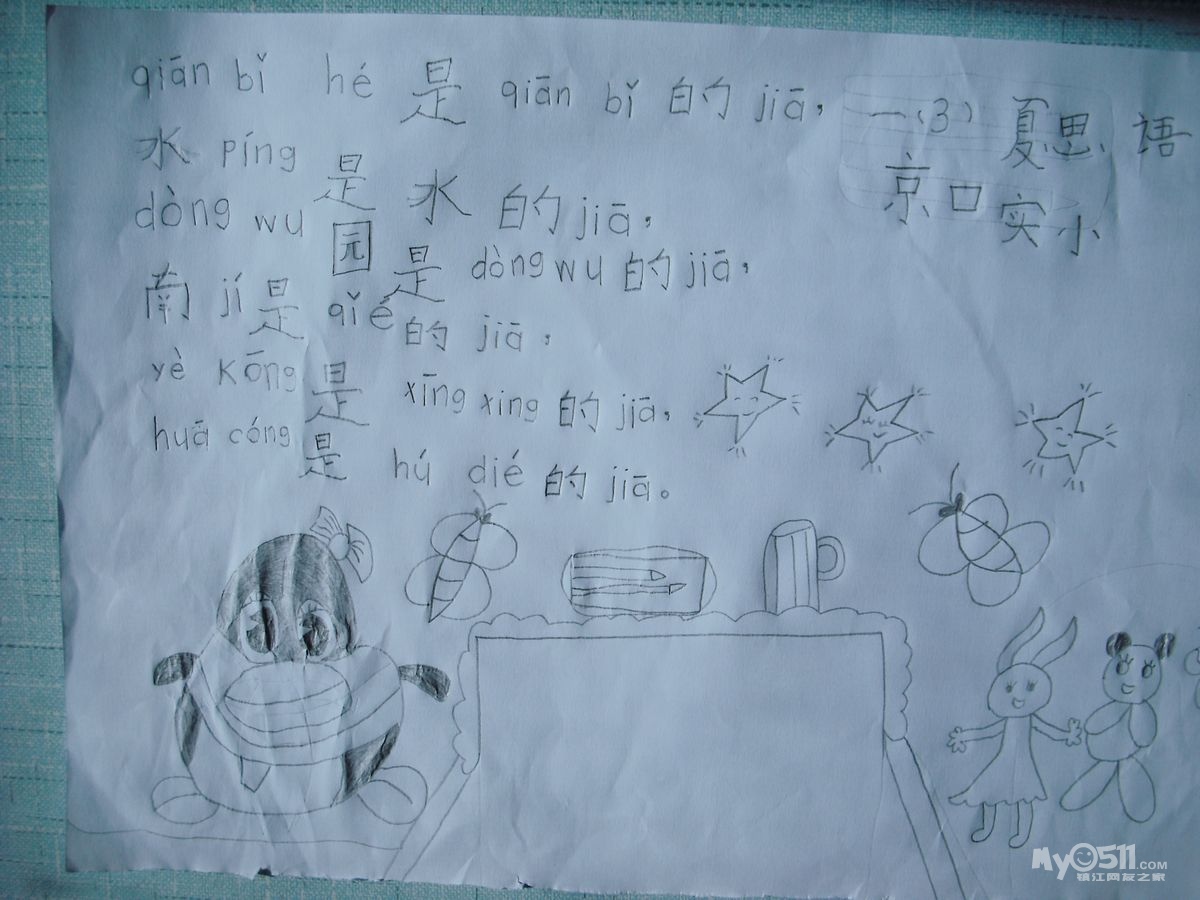 qiān bǐ hé 是 qiān bǐ 的 jiā，
水 píng 是 水 的 jiā，
dòng wu 园 是 dòng wu 的 jiā，
南 jí 是 qǐ é 的 jiā，
yè kōng 是 xīng xing 的 jiā，
huā cóng 是 hú dié 的 jiā。
一（3） 夏思语
京口实小
My0511.COM
镇江网友之家